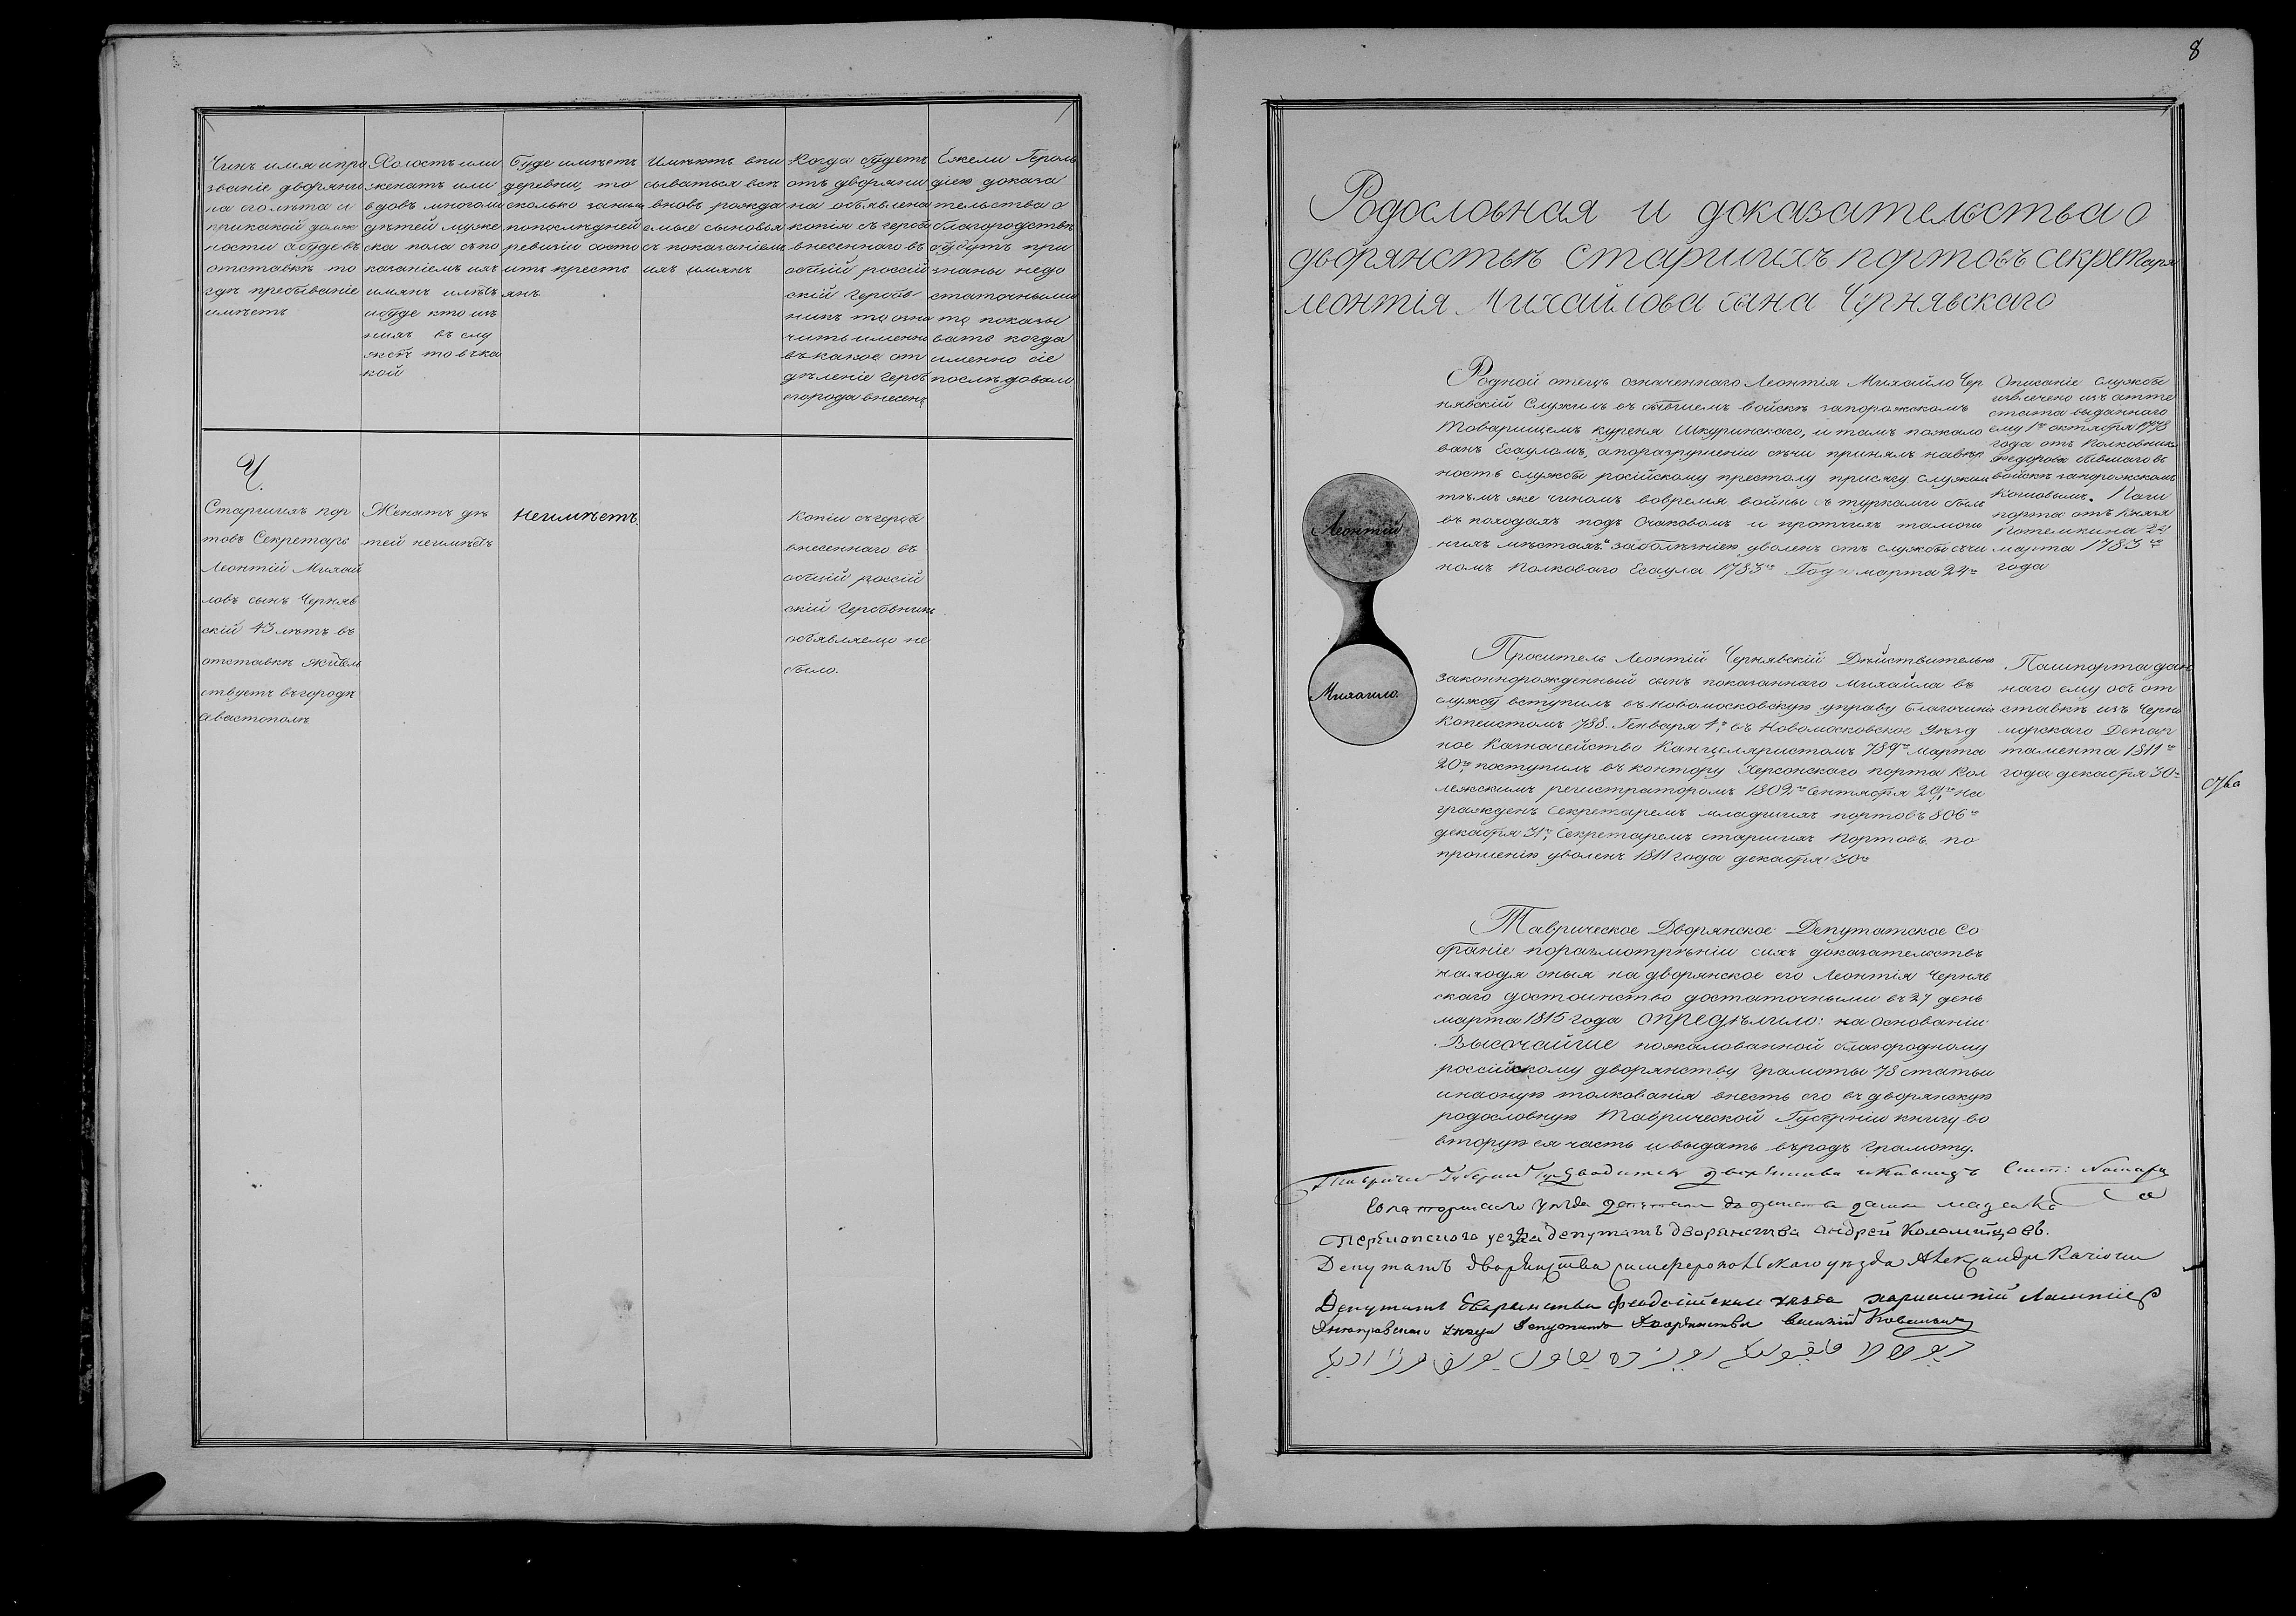 Чинъ имя и про
званіе дворяни
на его лѣта и
при какой долж
ности а буде въ
отставкѣ то
гдѣ пребываніе
имѣетъ
Холостъ или
женатъ или
вдовъ много ли
дѣтей муже
ска пола съ по
казаніемъ ихъ
имянъ и лѣтъ
и буде кто изъ
нихъ въ слу
жбѣ то въ ка
кой
Буде имѣетъ
деревни, то
сколько за нимъ
по послѣдней
ревизіи состо
итъ кресть
янъ
Имѣютъ впи
сываться всѣ
вновь рожда
емые сыновья
съ показаніемъ
ихъ имянъ
Когда будетъ
отъ дворяни
на объявлена
копія съ герба
внесеннаго въ
общій россій
скій гербов
никъ то озна
чить именно
въ какое от
дѣленіе гербъ
его рода внесенъ
Ежели Героль
діею доказа
тельства о
благородствѣ
будутъ при
знаны недо
статочными
то показы
вать когда
именно сіе
послѣдовало
Ч.
Старшихъ пор
товъ Секретарь
Леонтій Михай
ловъ сынъ Черняв
скій 43 лѣтъ въ
отставкѣ жител
ствуетъ въ городѣ
севастополѣ
Женатъ дѣ
тей неимѣетъ
Неимѣетъ
Копіи съ герба
внесеннаго въ
общій россій
скій Гербовникъ
объявляемо не
было.
8
Родословная и доказательства о
дворянствѣ старшихъ портовъ секретаря
леонтія Михайлова сына Чернявскаго
Леонтій
Михаило
Родной отецъ означеннаго Леонтія Михайло Чер
нявскій Служилъ въ бывшемъ войскѣ запорожскомъ
Товарищемъ куреня Шкуринскаго, и тамъ пожало
ванъ Есауломъ, а поразрушеніи сѣчи принялъ навѣр
ность службы россійскому престолу присягу служил
тѣмъ же чиномъ вовремя войны съ турками былъ
въ походахъ подъ Очаковомъ и протчихъ тамош
нихъ мѣстахъ. заболѣзнію уволенъ отъ службы съ чи
номъ Полковаго Есаула 1783го Года марта 24го
Описаніе службы
извлечено изъ атте
стата выданнаго
ему 1го октября 1778
года отъ Полковника
Федорова бывшаго въ
войскѣ запорожскомъ
Кошовымъ. Паши
порта отъ Князя
Потемкина 24
марта 1783го
года
Проситель Леонтій Чернявскій Дѣйствительно
законнорожденный сынъ показаннаго Михайла въ
службу вступилъ въ Новомосковскую управу благочинія
Копеистомъ 788. Генваря 1го въ Новомосковское Уѣзд
ное Казначейство Канцеляристомъ 789го марта
20го поступилъ въ контору Херсонскаго порта Кол
лежскимъ регистраторомъ 1802го Сентября 29го на
гражденъ Секретаремъ младшихъ портовъ 806го
декабря 31го Секретаремъ старшихъ Портовъ по
прошенію уволенъ 1811 года декабря 30го
Пашпорта дан
наго ему объ от
ставкѣ изъ Черно
морскаго Депар
тамента 1811го
года декабря 30го
Таврическое Дворянское Депутатское Со
браніе поразмотрѣніи сихъ доказательствъ
находя оныя на дворянское его Леонтія Черняв
скаго достоинство достаточными въ 27 день
марта 1815 года опредѣлило: на основаніи
Высочайше пожалованной благородному
россійскому дворянству Грамоты 78 статьи
инаоную толкованія внесть его въ дворянскую
родословную Таврической Губерніи книгу во
вторую ея часть и выдать въ родъ грамоту.
Губерніи дворянства
уѣзда
Перекопского уезда депутатъ дворянства андрей Коломійцовъ.
Депутатъ дворянства симферопольскаго уѣзда Александръ
Депутатъ дворянства феодосійскаго уезда
Днепровскаго Депутатъ дворянства